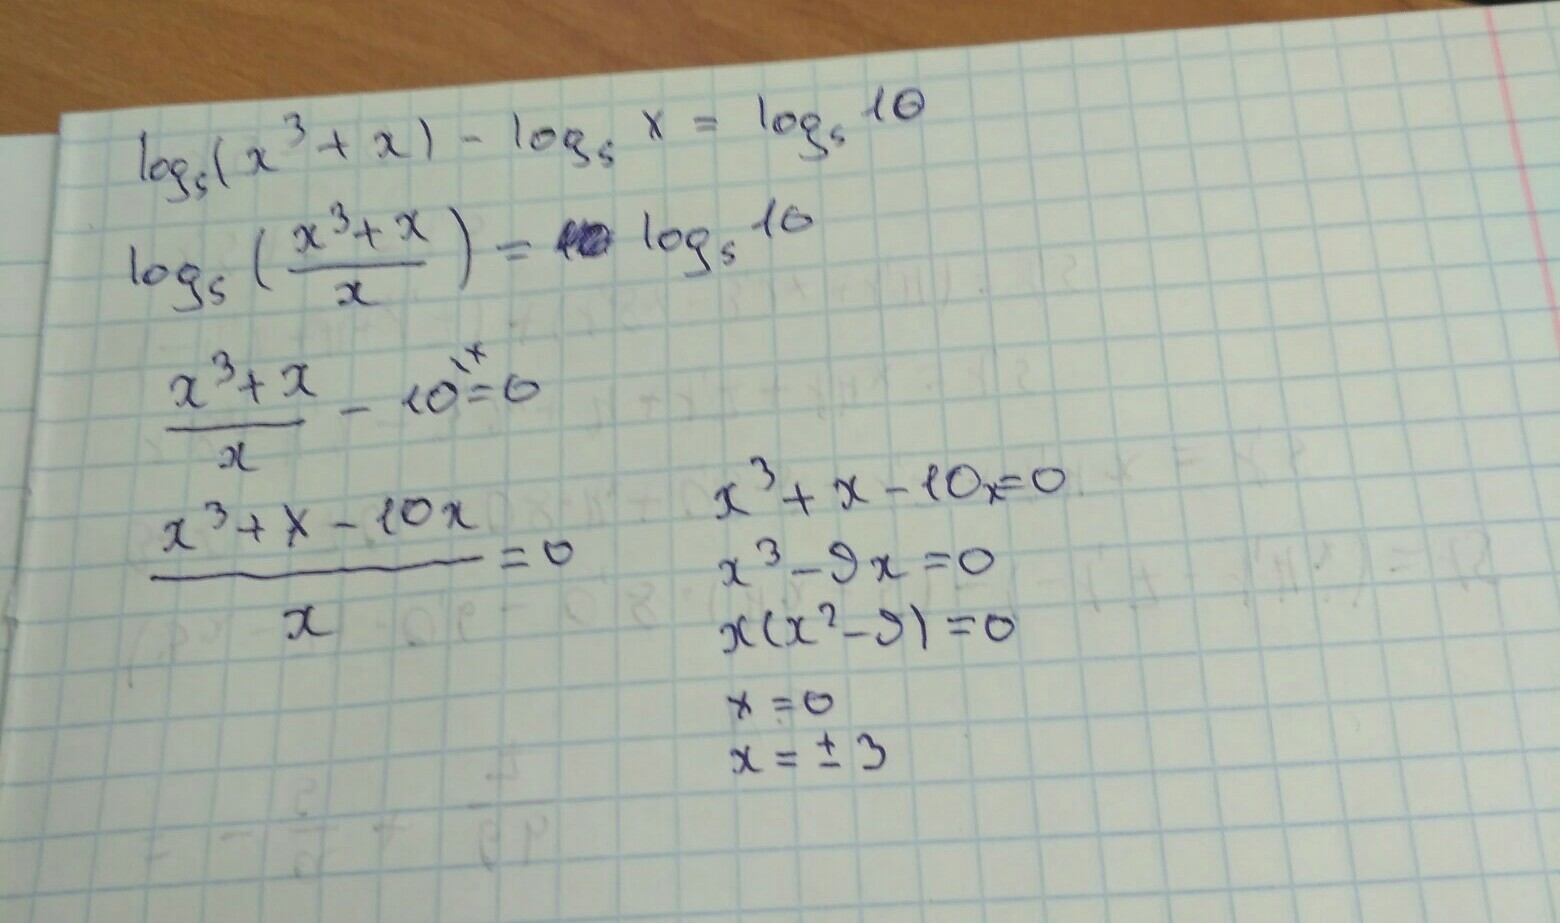 log₅(x³+x) - log₅ x = log₅ 10
log₅ ((x³+x)/x) = log₅ 10
(x³+x)/x - 10 \ˣ = 0
(x³+x-10x)/x = 0
x³+x-10x=0
x³-9x=0
x(x²-9)=0
x=0
x=±3